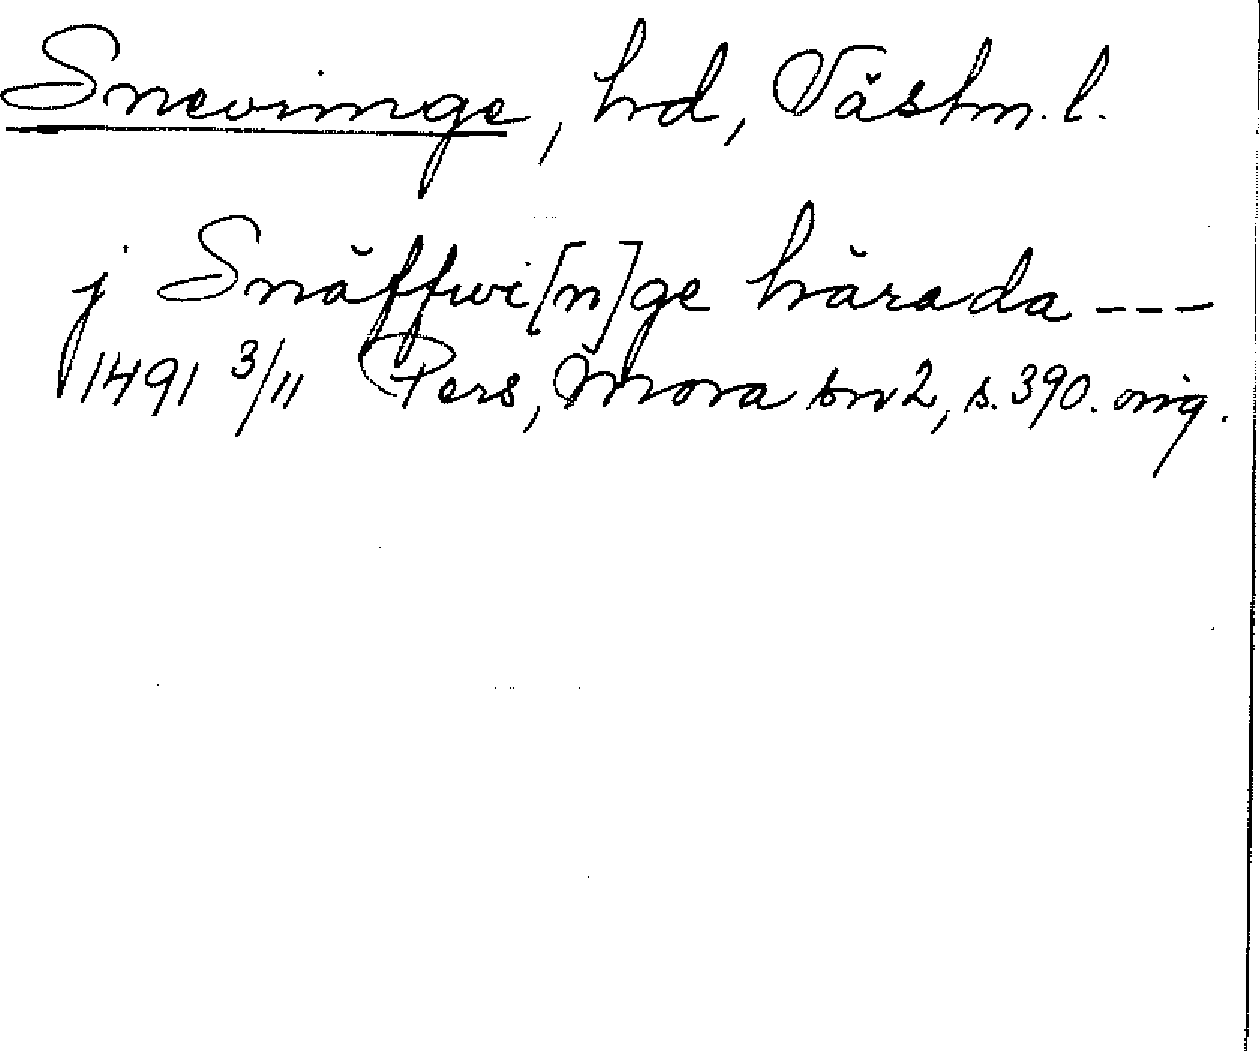 Snevringe, hd, Västm. l.
j Snäffwi[n]ge härada ---
1491 3/11 Pers, Mora br 2, s. 390. orig.